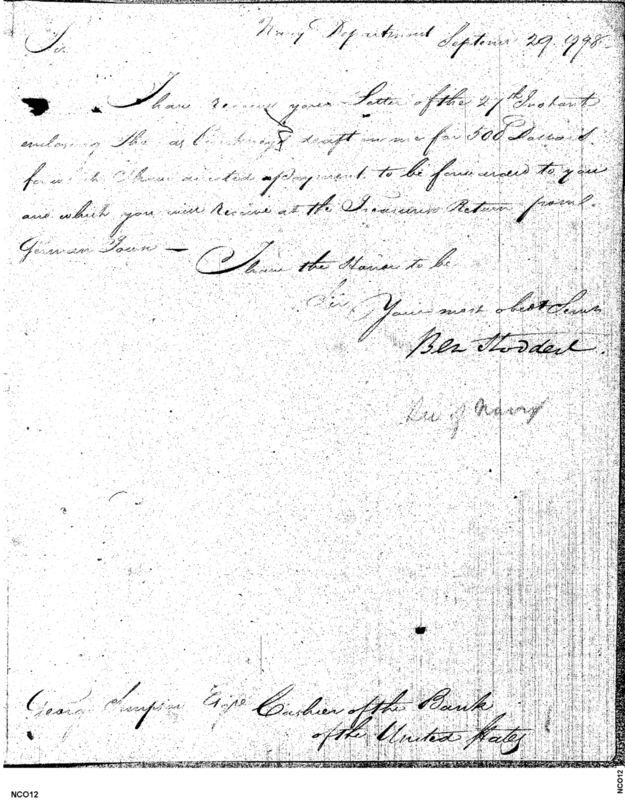 Navy Department September 29. 1798.
Sir
I have received your Letter of the 27th Instant
enclosing draft on me for 500 Dollars.
for which I have directed a payment to be forwarded to you
and which you will Receive at the Treasurers Return from
German Town —
I have the Honor to be
Sir
Your most obedt Servt
Ben Stoddert.
Sec of Navy
George Simpson Esqr Cashier of the Bank
of the United States
NCO12
NCO12